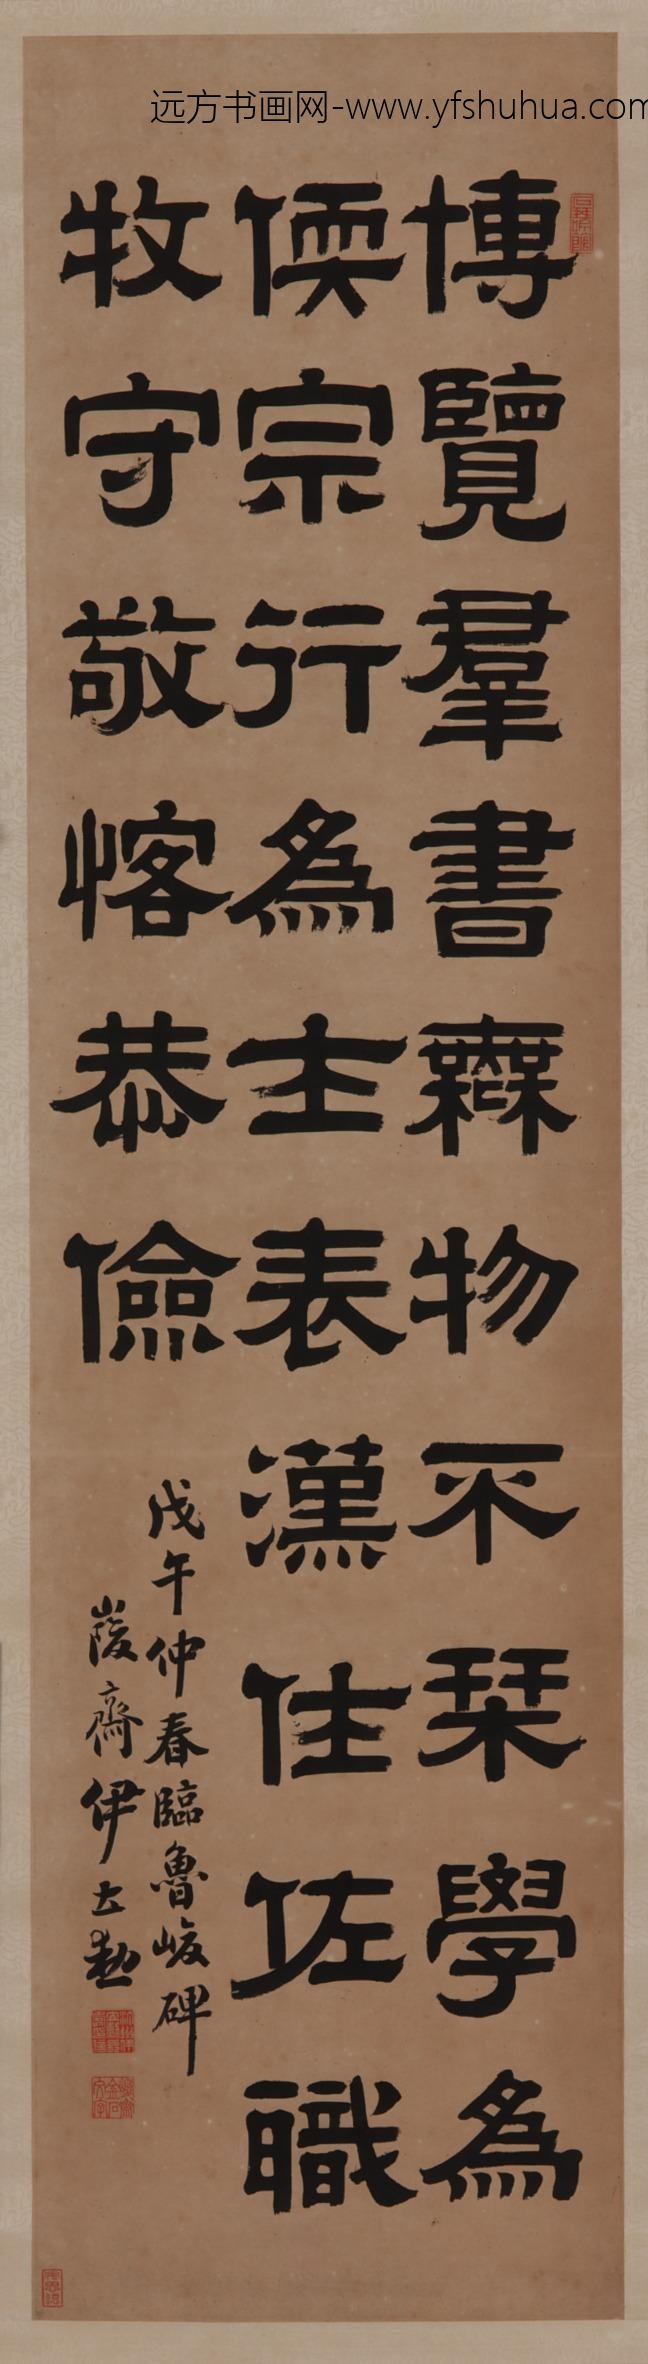 远方书画网-www.yfshuhua.com
博覽羣書無物不栞學為
偄宗行為士表漢仕佐職
牧守敬恪恭儉
戊午仲春臨魯峻碑
峻齋伊立勳